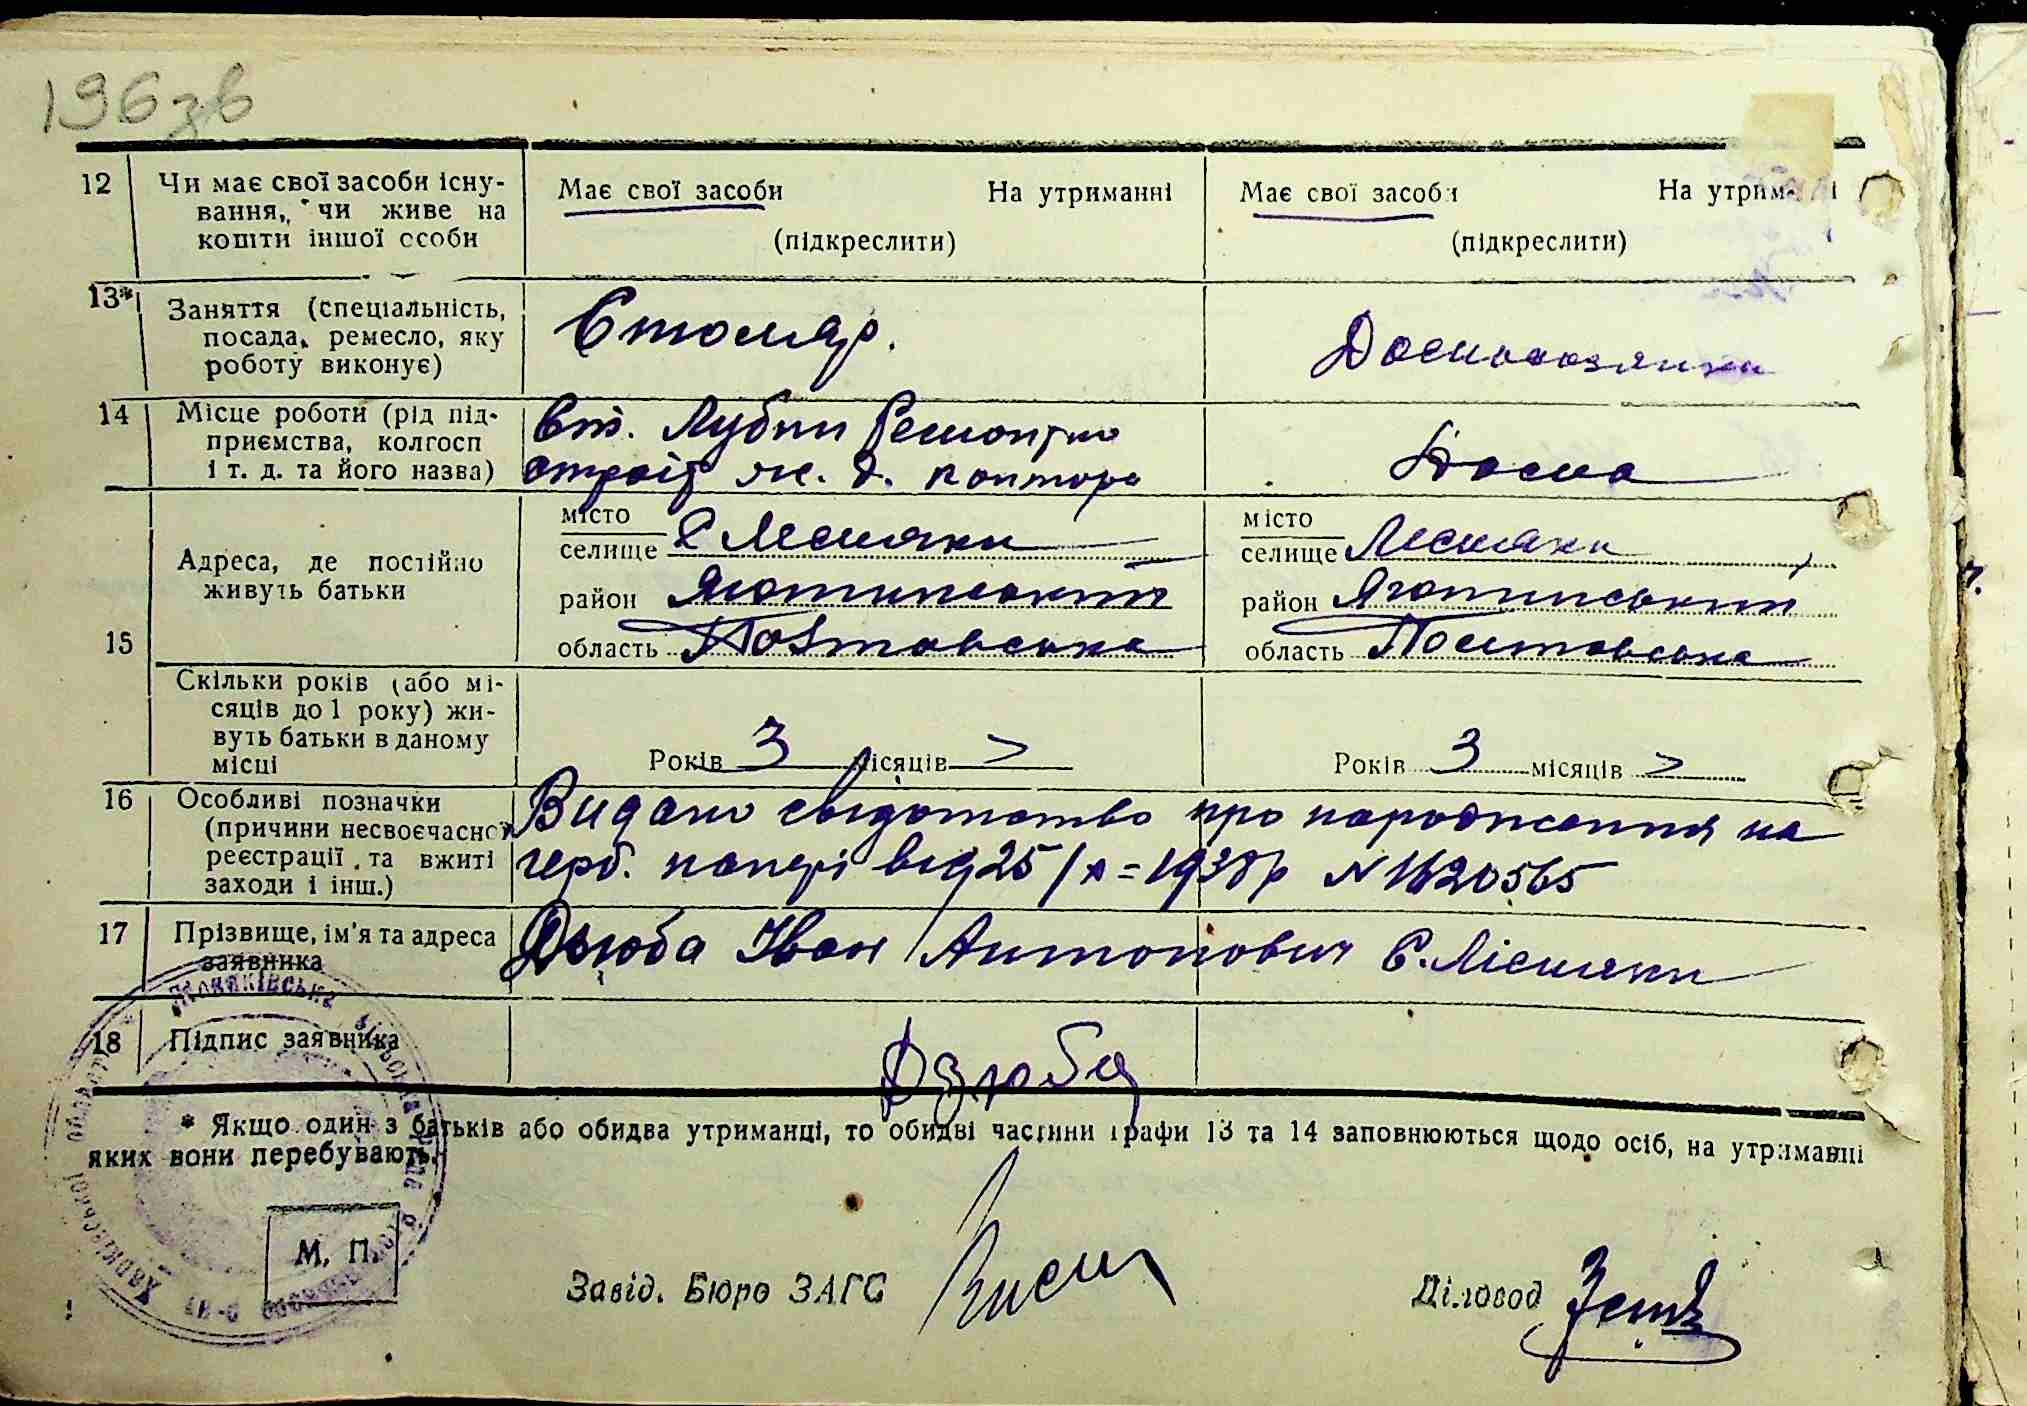 196 зв
12 Чи має свої засоби існу-
вання, чи живе на
кошти іншої особи
Має свої засоби На утриманні
(підкреслити)
Має свої засоби На утрим і
(підкреслити)
13* Заняття (спеціальність,
посада, ремесло, яку
роботу виконує)
Столяр.
Домохозяйка
14 Місце роботи (рід під-
приємства, колгосп
і т. д. та його назва)
Ст. Лубни Ремонтно
строїт ж. д. контора
Дома
15 Адреса, де постійно
живуть батьки
місто
селище С Лесняки
район Яготинський
область Полтавська
місто
селище Лесняки
район Яготинський
область Полтавська
Скільки років (або мі-
сяців до 1 року) жи-
вуть батьки в даному
місці
Років 3 місяців
Років 3 місяців
16 Особливі позначки
(причини несвоєчасної
реєстрації та вжиті
заходи і інш.)
Видано свідотство про народження на
герб. папері від 25/X=1938р N 1620565
17 Прізвище, ім'я та адреса
заявника
Дзюба Іван Антонович С. Лісняки
18 Підпис заявника
Дзюба
* Якщо один з батьків або обидва утриманці, то обидві частини графи 13 та 14 заповнюються щодо осіб, на утриманні
яких вони перебувають.
М. П.
Завід. Бюро ЗАГС
Діловод